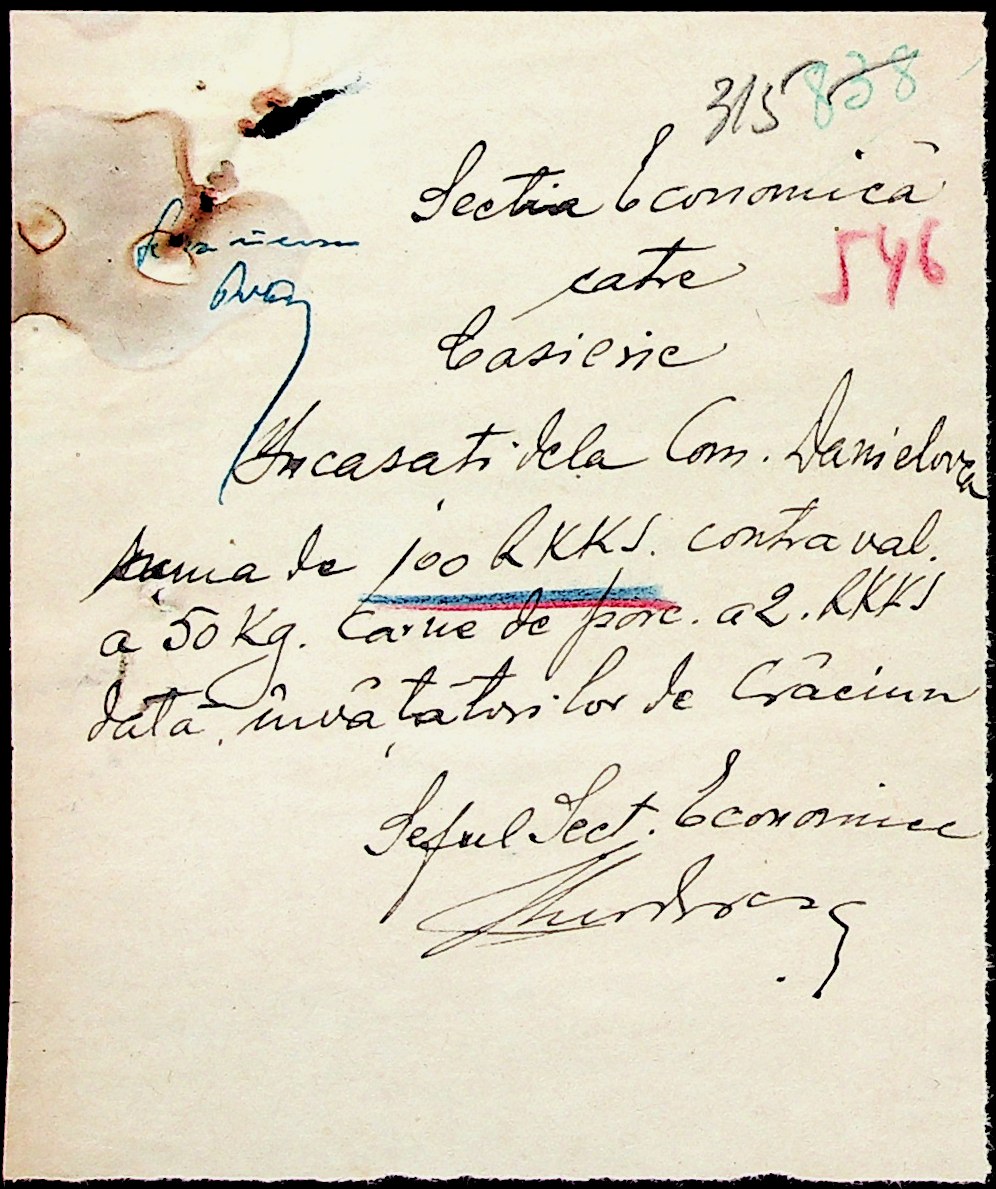 315 838
Sectia Economică
546
catre
Casierie
Incasati dela Com. Danielovca
suma de 100 RKKS. contraval.
a 50 Kg. Carne de porc. a 2. RKKS
dată învătătorilor de Crăciun
Seful Sect. Economice